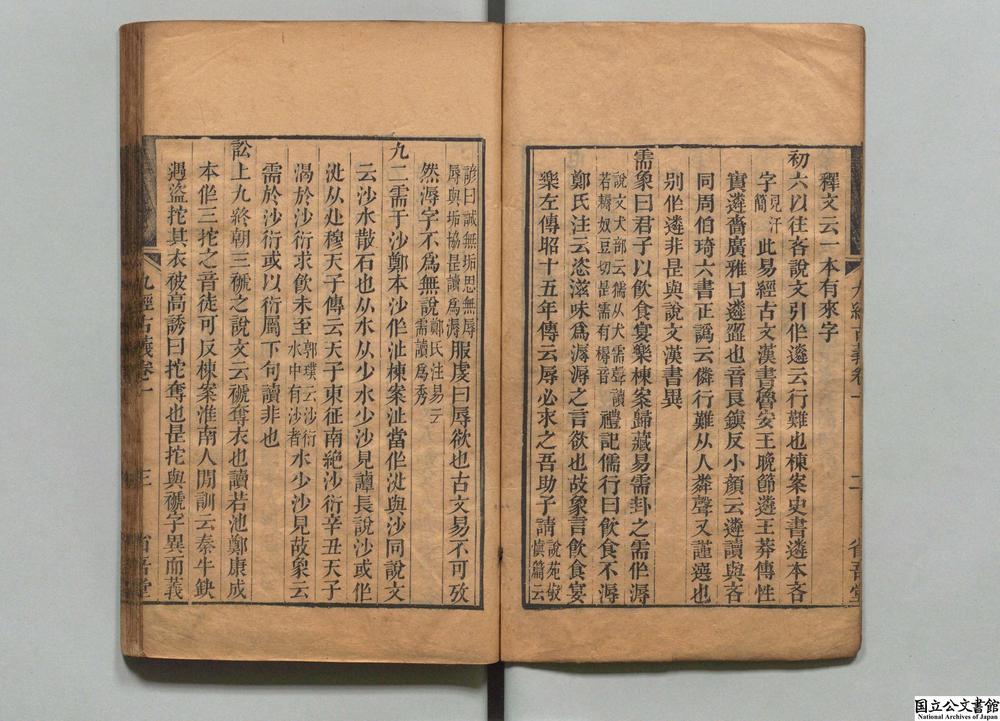 九經古義卷一 二 省吾堂
釋文云一本有來字
初六以往吝說文引作遴云行難也棟案史書遴本吝
字見汗簡此易經古文漢書魯安王晚節遴王莽傳性
實遴嗇廣雅曰遴歰也音艮鎭反小顏云遴讀與吝
同周伯琦六書正譌云僯行難从人粦聲又謹選也
別作遴非是與說文漢書異
需象曰君子以飮食宴樂棟案歸藏易需卦之需作溽
說文犬部云獳从犬需聲讀若槈奴豆切是需有槈音禮記儒行曰飮食不溽
鄭氏注云恣滋味爲溽溽之言欲也故象言飮食宴
樂左傳昭十五年傳云辱必求之吾助子請說苑敬慎篇云
諺曰誠無垢思無辱辱與垢協是讀爲溽服虔曰辱欲也古文易不可攷
然溽字不爲無說鄭氏注易云需讀爲秀
九二需于沙鄭本沙作沚棟案沚當作㳐與沙同說文
云沙水散石也从水从少水少沙見譚長說沙或作
㳐从尐穆天子傳云天子東征南絕沙衍辛丑天子
渴於沙衍求飮未至郭璞云沙衍水中有沙者水少沙見故象云
需於沙衍或以衍屬下句讀非也
訟上九終朝三褫之說文云褫奪衣也讀若池鄭康成
本作三拕之音徒可反棟案淮南人閒訓云秦牛缺
遇盜拕其衣被高誘曰拕奪也是拕與褫字異而義
九經古義卷一 三 省吾堂
国立公文書館
National Archives of Japan